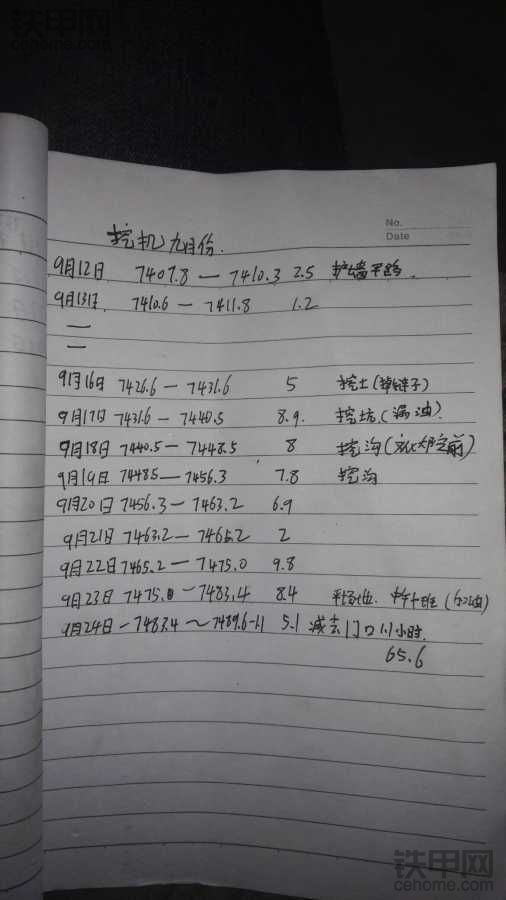 铁甲网
cehome.com
No.
Date
挖机九月份.
9月12日 7407.8 — 7410.3 2.5 护墙平路.
9月13日 7410.6 — 7411.8 1.2
—
—
9月16日 7426.6 — 7431.6 5 挖土(掉链子)
9月17日 7431.6 — 7440.5 8.9. 挖坑(漏油).
9月18日 7440.5 — 7448.5 8 挖沟(前)
9月19日 7448.5 — 7456.3 7.8 挖沟
9月20日 7456.3 — 7463.2 6.9
9月21日 7463.2 — 7465.2 2
9月22日 7465.2 — 7475.0 9.8
9月23日 7475.0 — 7483.4 8.4 平场地. 班(加油)
9月24日 - 7483.4 ~ 7489.6-1.1 5.1 减去门口1.1小时.
65.6
铁甲网
cehome.com